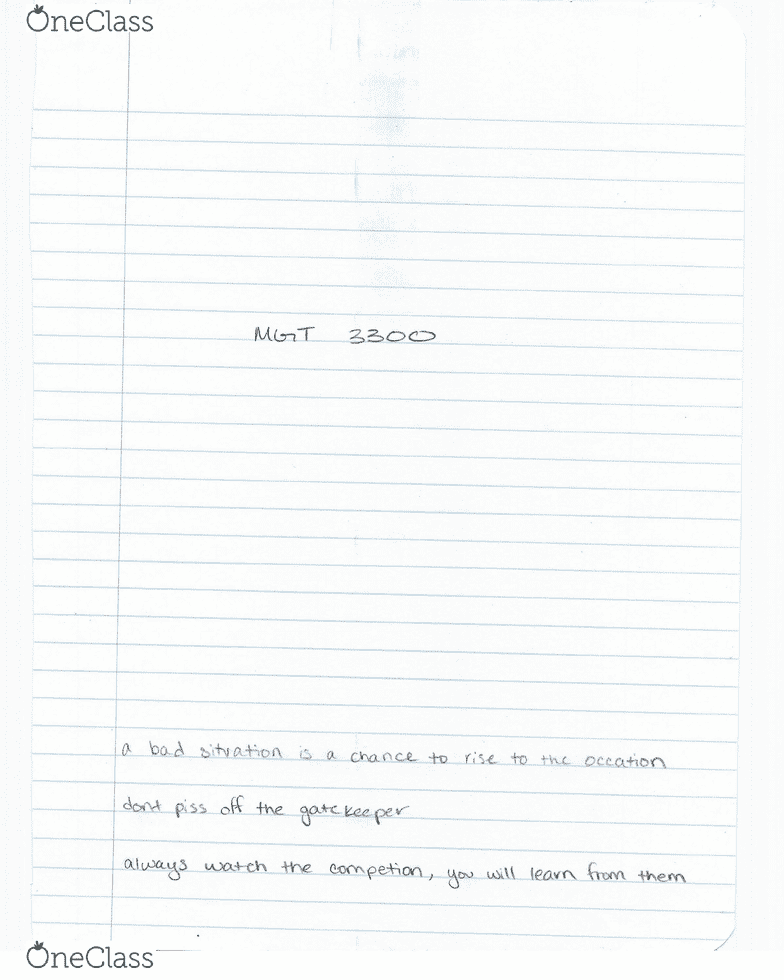 OneClass
MGT 3300
a bad situation is a chance to rise to the occation
dont piss off the gatekeeper
always watch the competion, you will learn from them
OneClass